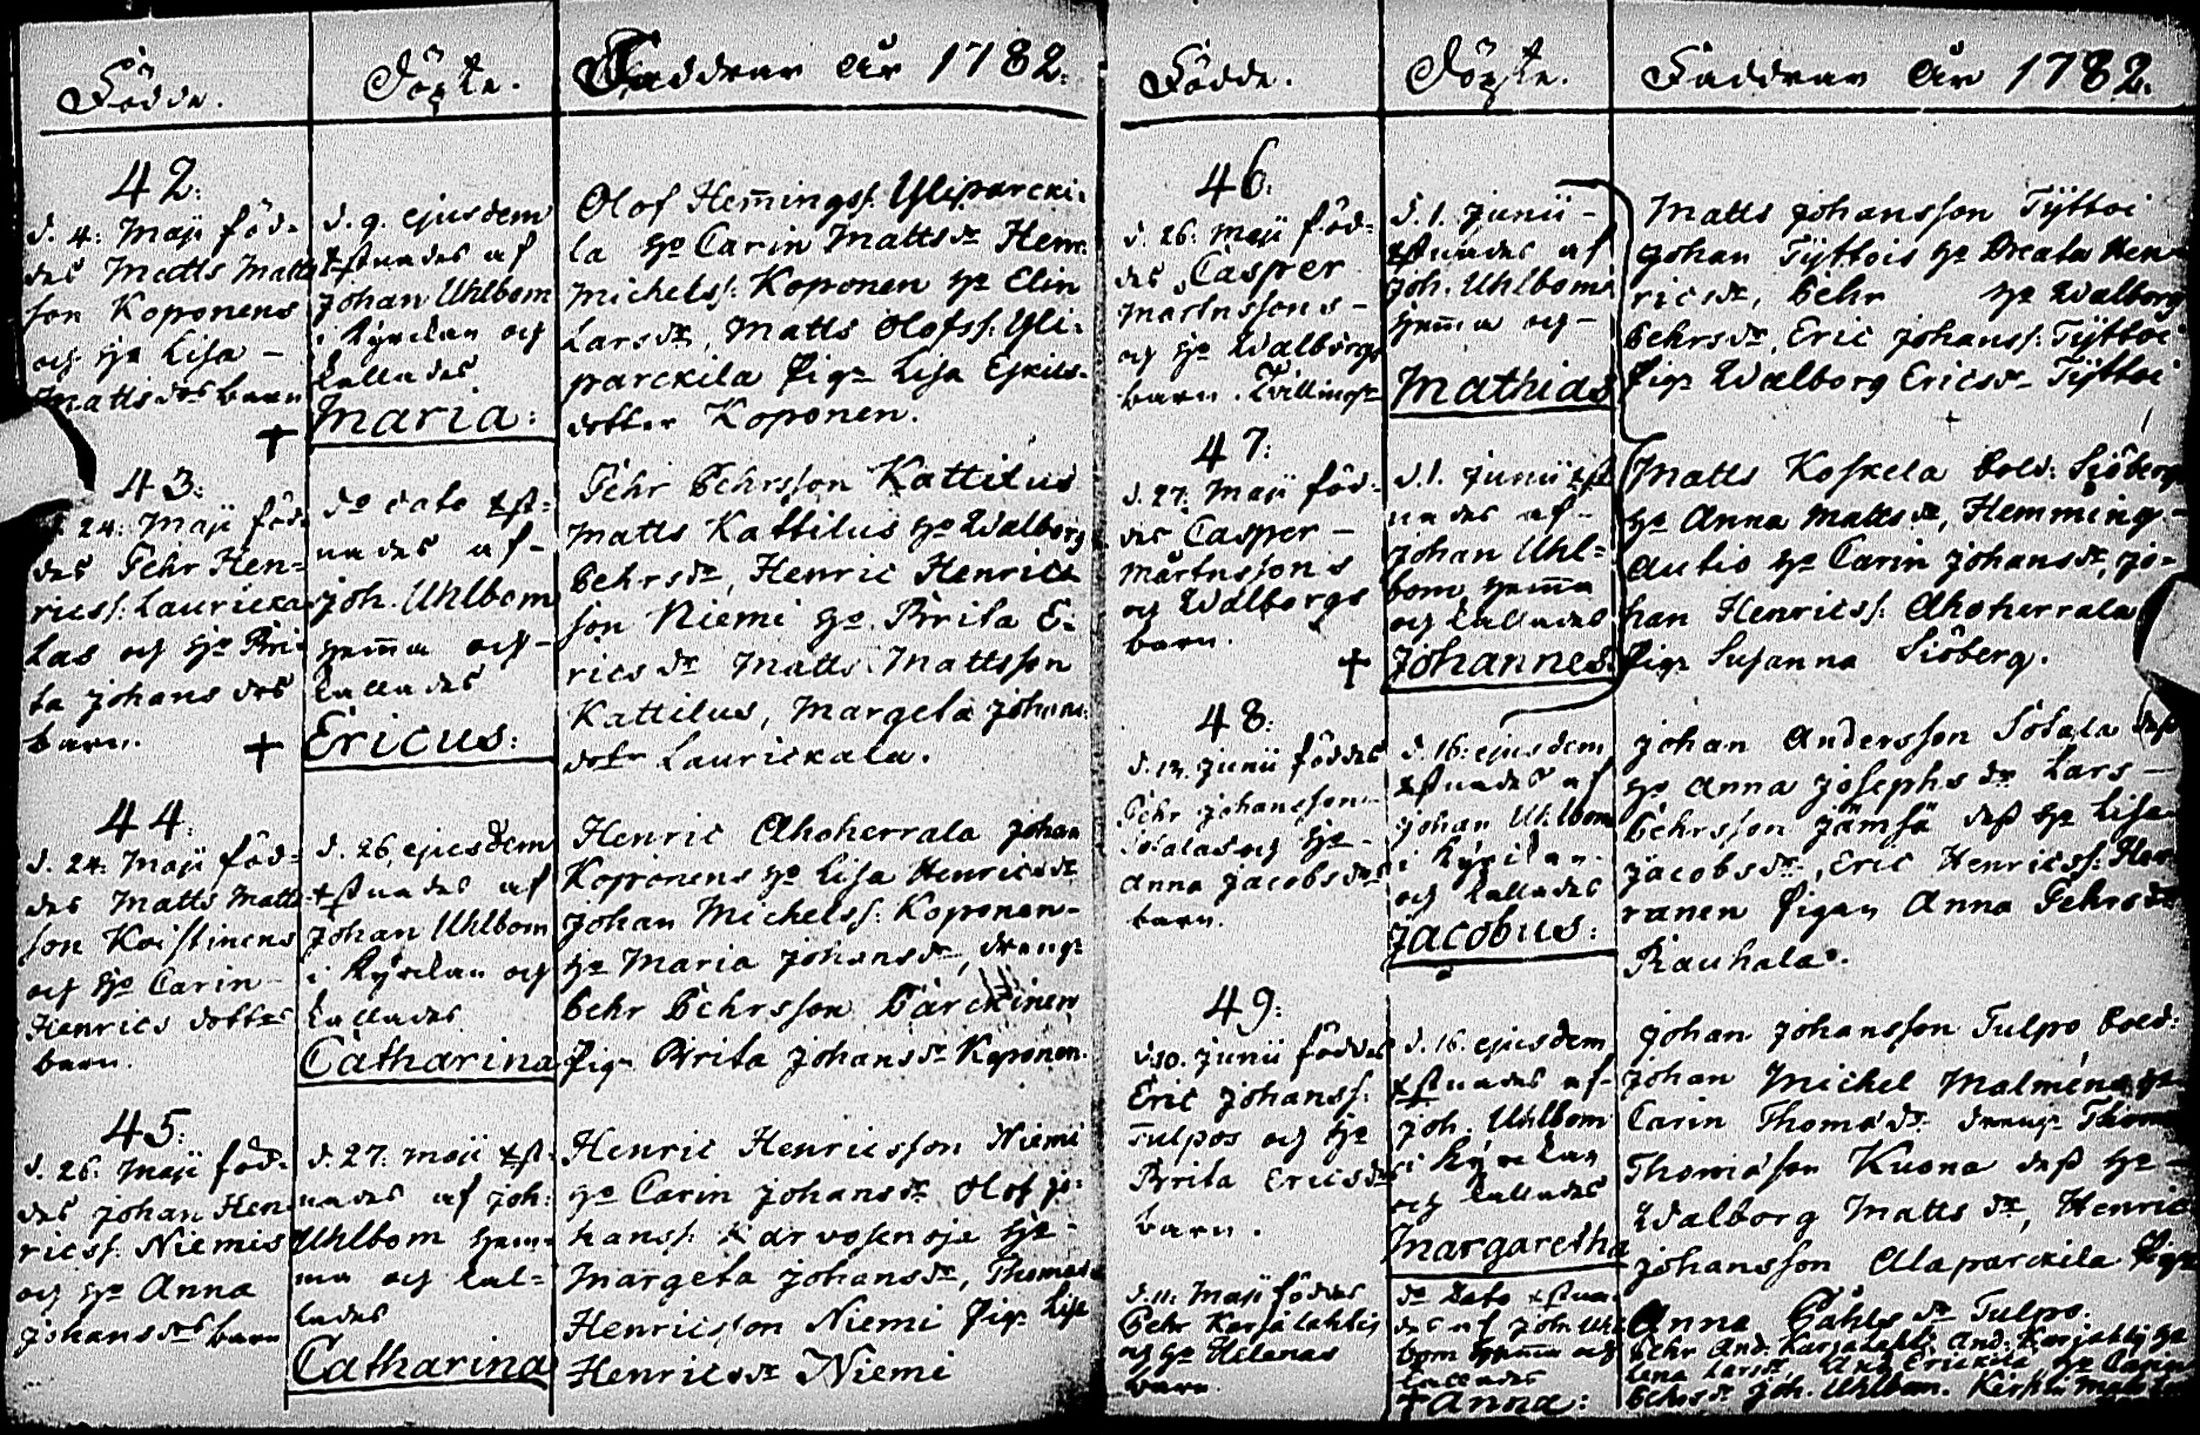 Födde.
Döpte.
Faddrar År 1782.
42.
d. 4. Maji föd-
des Matts Matts
son Koponens
och H:o Lisa -
Mattsd:rs barn
d. 9. ejusdem
af
Johan Uhlbom
i Kyrckan och
kallades
Maria:
Olof Hemmingss: Yliparcki-
la H:o Carin Mattsd:r Henr:
Michelss: Koponen H:o Elin
Larsd:r, Matts Olofss: Yli-
parckila Pig: Lisa
dotter Koponen.
43.
24: Maji föd-
des Pehr Hen-
ricss: Lauricka-
las och H:o Bri-
ta Johansd:rs
barn.
D:o dato
nades af -
Joh. Uhlbom
hemma och -
kallades
Ericus:
Pehr Pehrsson Kattilus
Matts Kattilus H:o Walborg
Pehrsd:r, Henric Henrics
son Niemi H:o Brita E-
ricsd:r Matts Mattsson
Kattilus, Margeta Johans
dot:r Laurickala.
44.
d. 24. Maji föd-
des Matts Matts
son Koistinens
och H:o Carin
Henrics dotters
barn.
d. 26 ejusdem
af
Johan Uhlbom
i Kyrckan och
kallades
Catharina
Henric Ahoherrala Johan
Koponens H:o Lisa Henricsd:r
Johan Michelss: Koponen -
H:o Maria Johansd:r, dreng:
Pehr Pehrsson Pärckinen
Pig: Brita Johansd:r Koponen.
45:
d. 26. Maji föd-
des Johan Hen-
ricss: Niemis
och H:o Anna
Johansd:rs barn
d. 27. Maji
nades af Joh:
Uhlbom hem-
ma och kal-
lades
Catharina
Henric Henricsson Niemi
H:o Carin Johansd:r Olof Jo-
hanss: Karvosenoja H:o -
Margeta Johansd:r, Thomas
Henricsson Niemi Pig: Lisa
Henricsd:r Niemi
Födde.
Döpte.
Faddrar År 1782.
46.
d. 26. Maji föd-
des Casper
Mårtnssons -
och H:o Walborgs
barn. Tvillingar
d. 1. Junii -
af
Joh. Uhlbom
hemma och -
Mathias
Matts Johansson Tyttoi
Johan Tyttois H:o Beata Hen-
ricsd:r, Pehr H:o Walborg
Pehrsd:r, Eric Johanss: Tyttoi
Pig: Walborg Ericsd:r Tyttoi
47.
d. 27. Maji föd-
des Casper -
Mårtnssons
och Walborgs
barn.
d. 1. Junii
nades af -
Johan Uhl-
bom hemma
och kallades
Johannes
Matts Koskela Sold: Siöberg
H:o Anna Mattsd:r, Hemming -
Autio H:o Carin Johansd:r, Jo-
han Henricss: Ahoherrala
Pig: Susanna Siöberg.
48.
d. 12. Junii föddes
Pehr Johansson
Sotalas och H:o -
Anna Jacobsd:rs
barn.
d. 16. ejusdem
af
Johan Uhlbom
i Kyrckan
och kallades
Jacobus:
Johan Andersson Sotala dess
H:o Anna Josephsd:r Lars -
Pehrsson Jämsä dess H:o Lisa
Jacobsd:r, Eric Henricss:
ranen Pigan Anna Pehrsd:r
Rauhala.
49.
d. 10. Junii föddes
Eric Johanss:
Tulpos och H:o
Brita Ericsd:rs
barn.
d. 16. ejusdem
af -
Joh. Uhlbom
i Kyrckan
och kallades
Margaretha
Johan Johansson Tulpo Sold:
Johan Michel Malmens H:o
Carin Thomasd:r dreng: Thom
Thomasson Kuona dess H:o -
Walborg Mattsd:r, Henric
Johansson Alaparckila Pig:
Anna Påhlsd:r Tulpo.
d. 11. Maji föddes
Pehr Karjalahtis
och H:o Helenas
barn.
D:o dato
des af Joh: Uhl
bom hemma och
kallades
Anna:
Pehr And: Karjalahti, And: Karjalahti H:o
Lena Larsd:r, And: Erickilä, H:o Carin
Pehrsd:r Joh. Uhlbom.